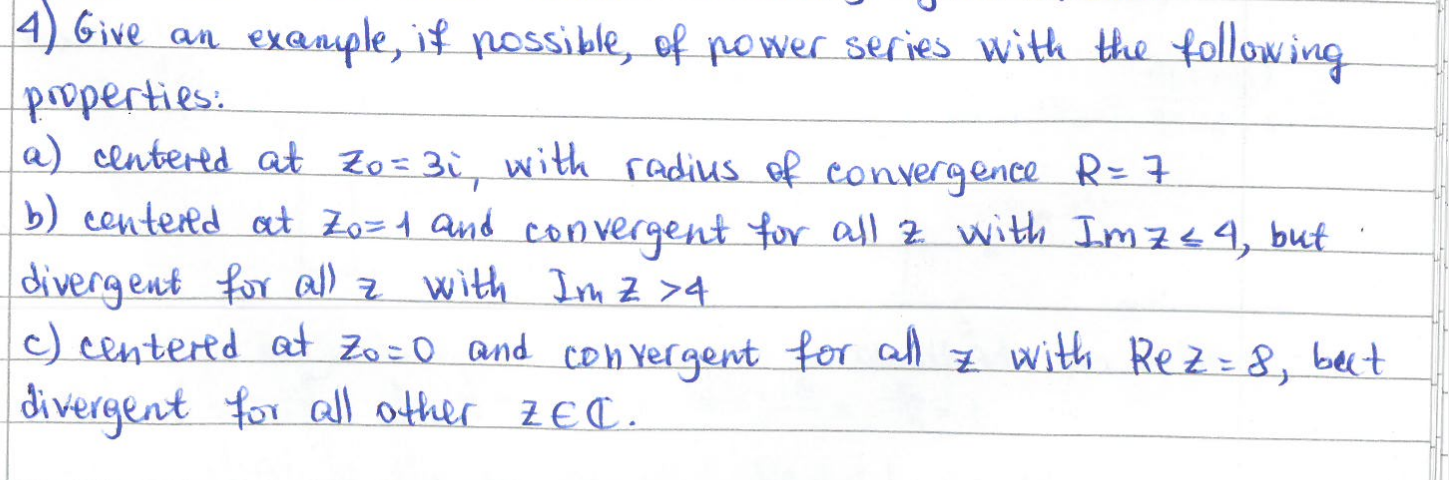 4) Give an example, if possible, of power series with the following
properties:
a) centered at z₀ = 3i, with radius of convergence R = 7
b) centered at z₀ = 1 and convergent for all z with Im z ≤ 4, but
divergent for all z with Im z > 4
c) centered at z₀ = 0 and convergent for all z with Re z = 8, but
divergent for all other z ∈ ℂ.